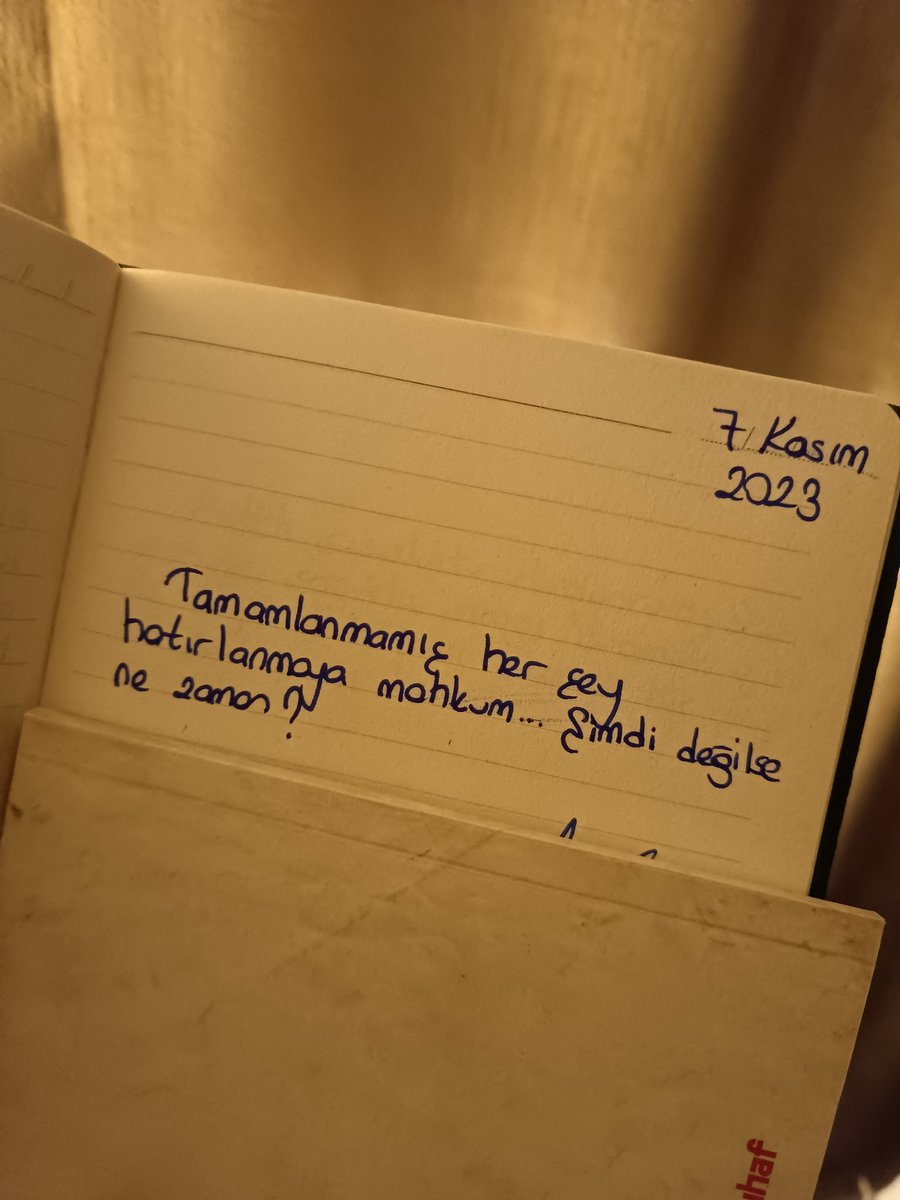 7 Kasım
2023
Tamamlanmamış her şey
hatırlanmaya mahkum... Şimdi değilse
ne zaman?